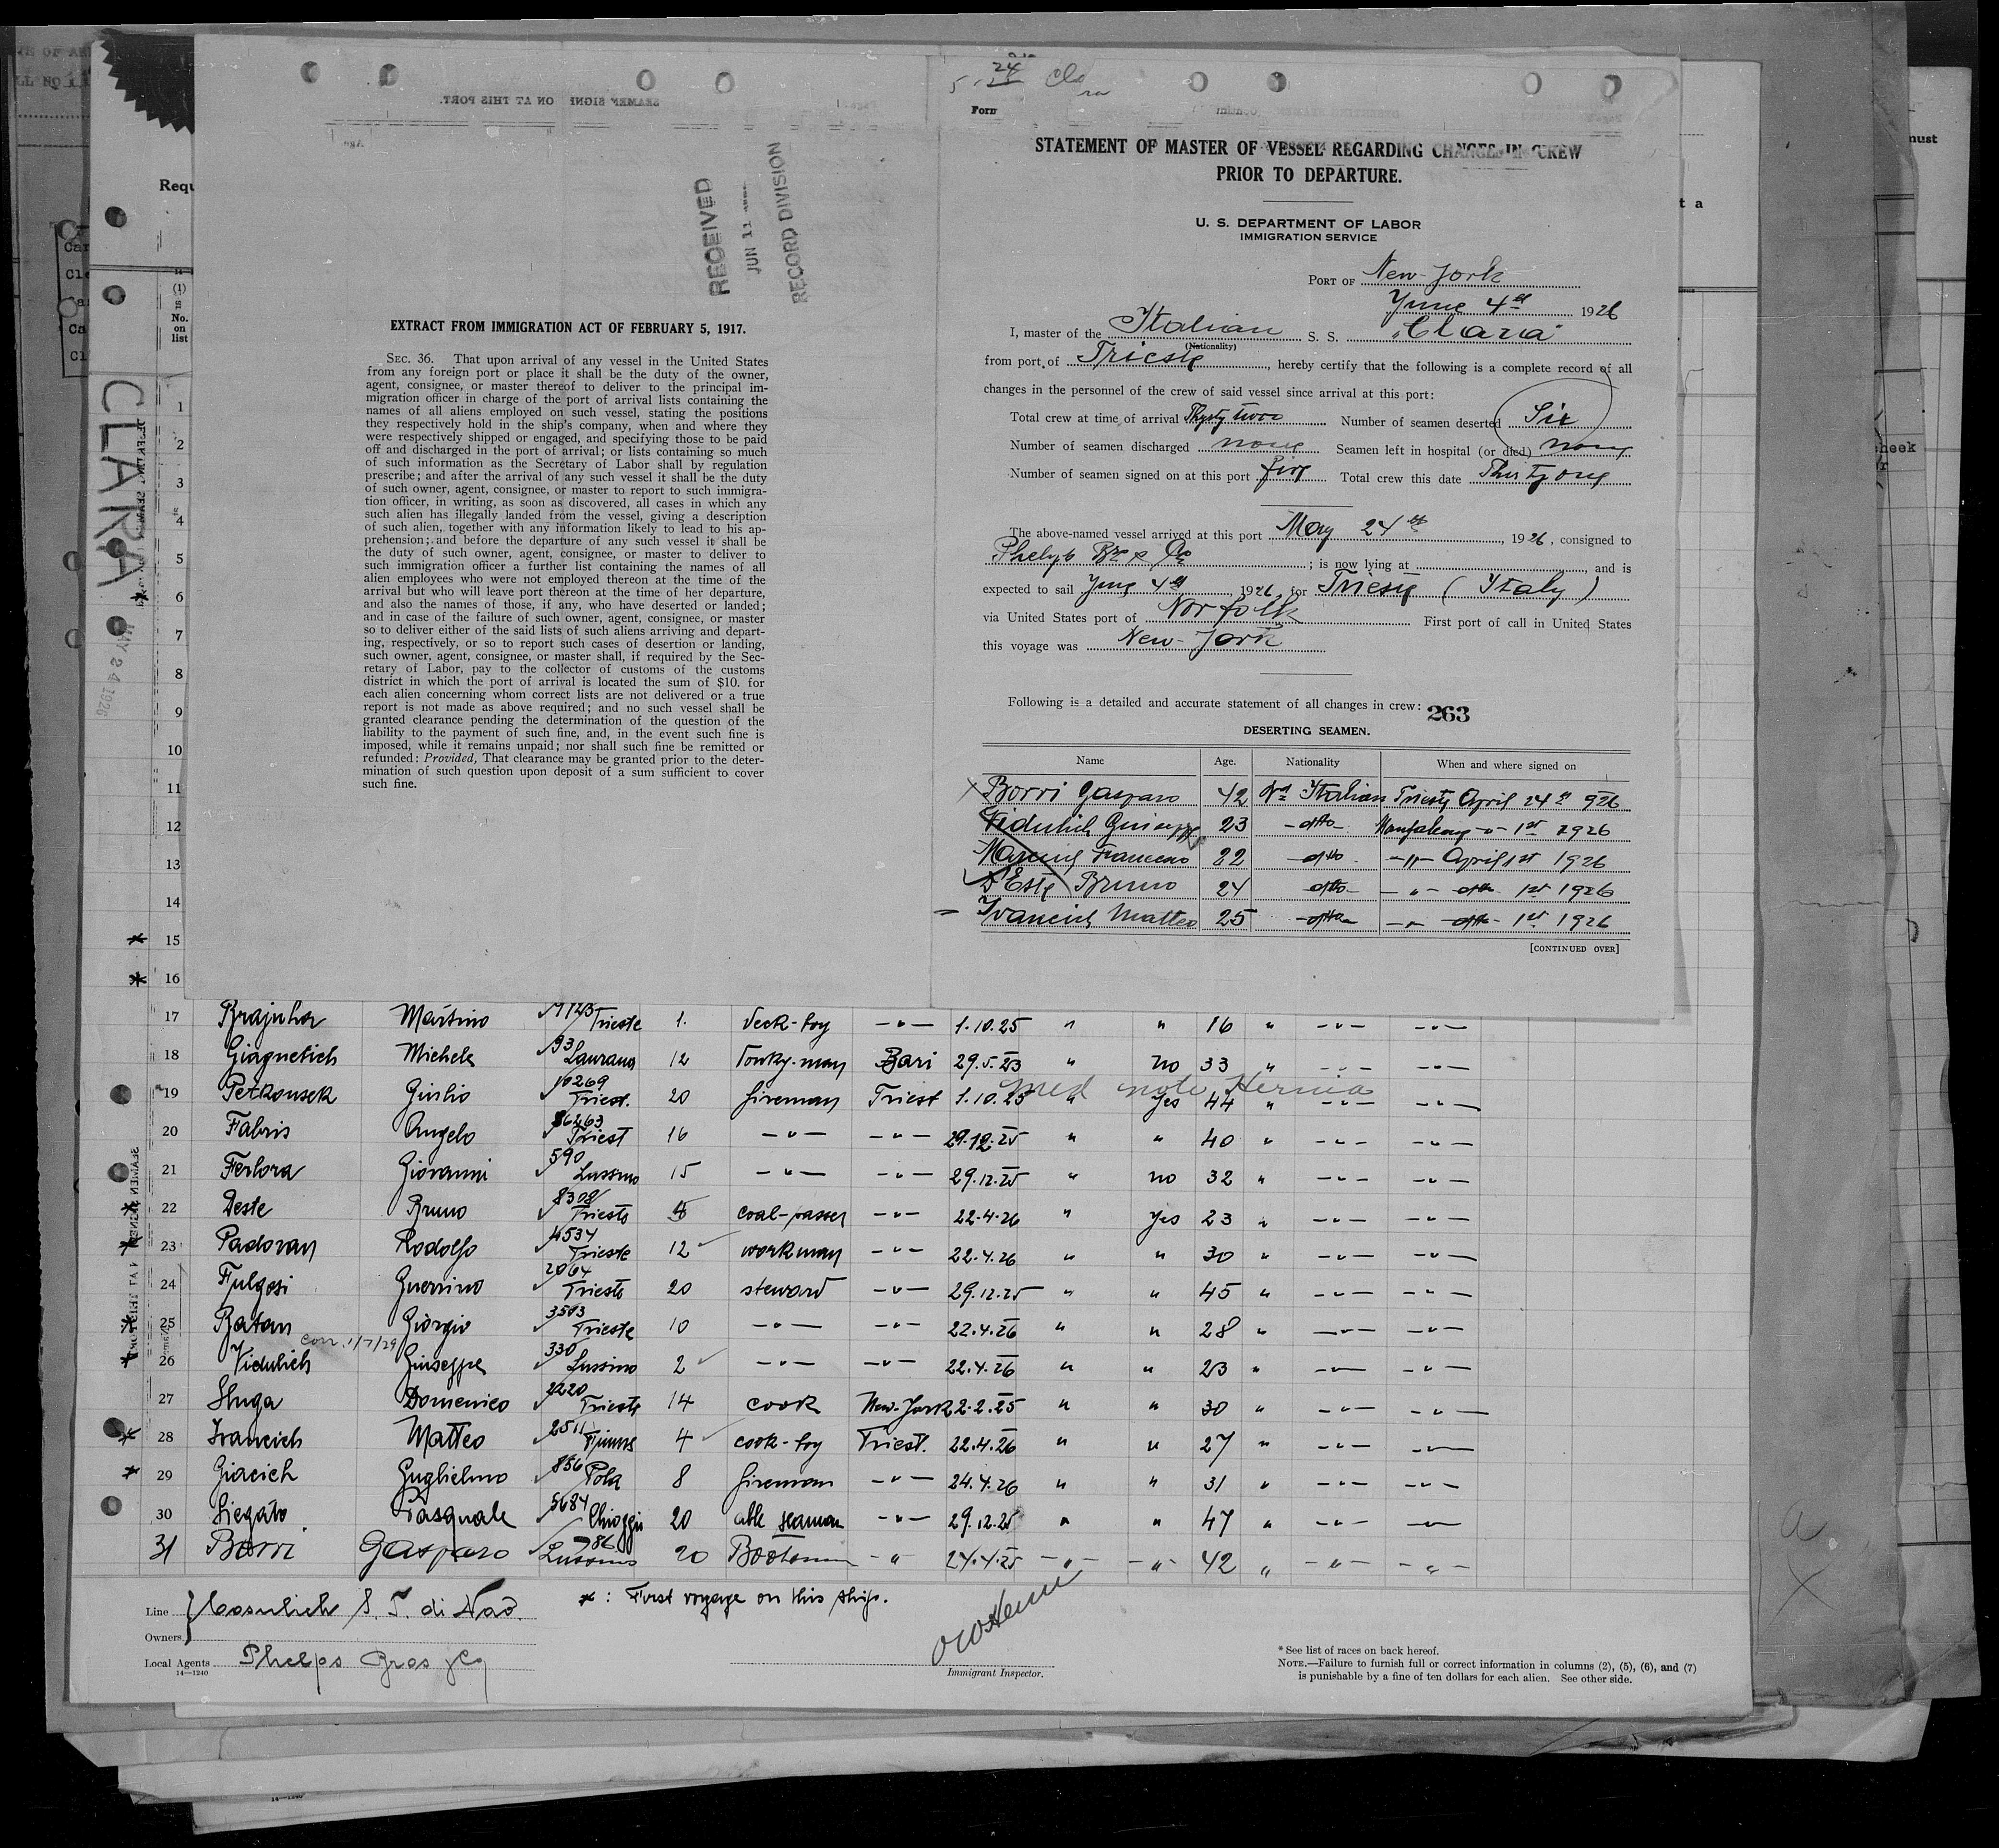 EXTRACT FROM IMMIGRATION ACT OF FEBRUARY 5, 1917.
SEC. 36. That upon arrival of any vessel in the United States
from any foreign port or place it shall be the duty of the owner,
agent, consignee, or master thereof to deliver to the principal im-
migration officer in charge of the port of arrival lists containing the
names of all aliens employed on such vessel, stating the positions
they respectively hold in the ship's company, when and where they
were respectively shipped or engaged, and specifying those to be paid
off and discharged in the port of arrival; or lists containing so much
of such information as the Secretary of Labor shall by regulation
prescribe; and after the arrival of any such vessel it shall be the duty
of such owner, agent, consignee, or master to report to such immigra-
tion officer, in writing, as soon as discovered, all cases in which any
such alien has illegally landed from the vessel, giving a description
of such alien, together with any information likely to lead to his ap-
prehension; and before the departure of any such vessel it shall be
the duty of such owner, agent, consignee, or master to deliver to
such immigration officer a further list containing the names of all
alien employees who were not employed thereon at the time of the
arrival but who will leave port thereon at the time of her departure,
and also the names of those, if any, who have deserted or landed;
and in case of the failure of such owner, agent, consignee, or master
so to deliver either of the said lists of such aliens arriving and depart-
ing, respectively, or so to report such cases of desertion or landing,
such owner, agent, consignee, or master shall, if required by the Sec-
retary of Labor, pay to the collector of customs of the customs
district in which the port of arrival is located the sum of $10. for
each alien concerning whom correct lists are not delivered or a true
report is not made as above required; and no such vessel shall be
granted clearance pending the determination of the question of the
liability to the payment of such fine, and, in the event such fine is
imposed, while it remains unpaid; nor shall such fine be remitted or
refunded: Provided, That clearance may be granted prior to the deter-
mination of such question upon deposit of a sum sufficient to cover
such fine.
RECEIVED
JUN 11
RECORD DIVISION
Form
STATEMENT OF MASTER OF VESSEL REGARDING CHANGES IN CREW
PRIOR TO DEPARTURE.
U. S. DEPARTMENT OF LABOR
IMMIGRATION SERVICE
PORT OF New-York
June 4th 1926
I, master of the Italian S. S. "Clara"
(Nationality)
from port of Trieste, hereby certify that the following is a complete record of all
changes in the personnel of the crew of said vessel since arrival at this port:
Total crew at time of arrival Thyrty two Number of seamen deserted Six
Number of seamen discharged none Seamen left in hospital (or died) none
Number of seamen signed on at this port five Total crew this date Thirty one
The above-named vessel arrived at this port May 24th, 1926, consigned to
Phelps Bros & Co; is now lying at , and is
expected to sail June 4th, 1926, for Trieste (Italy)
via United States port of Norfolk First port of call in United States
this voyage was New-York
Following is a detailed and accurate statement of all changes in crew: 263
DESERTING SEAMEN.
Name Age. Nationality When and where signed on
Borri Gasparo 42 Italian Trieste April 24th 926
Vidulich Guiseppe 23 -dtto- 1st 1926
Francesco 22 -dtto- -"- April 1st 1926
D'Este Bruno 24 -dtto- -"- dtto 1st 1926
Ivancich Matteo 25 -dtto- -"- dtto- 1st 1926
[CONTINUED OVER]
CLARA
MAY 24 1926
(1)
No.
on
list
1
2
3
4
5
6
7
8
9
10
11
12
13
14
* 15
* 16
17 Brajnha Martino 9123 Trieste 1. Deck-boy -"- 1.10.25 " " 16 " -"- -"-
18 Giagnetich Michele 93 Laurana 12 Donky-man Bari 29.5.23 " no 33 " -"- -"-
med note Hernia
19 Petkousek Giulio 10269 Triest. 20 fireman Triest 1.10.25 " Yes 44 " -"- -"-
20 Fabris Angelo 86263 Triest 16 -"- -"- 29.12.25 " " 40 " -"- -"-
21 Ferlora Giovanni 590 Lussino 15 -"- -"- 29.12.25 " no 32 " -"- -"-
* 22 Deste Bruno 8308 Trieste 5 coal-passer -"- 22.4.26 " Yes 23 " -"- -"-
* 23 Padovan Rodolfo 4534 Trieste 12 workman -"- 22.4.26 " " 30 " -"- -"-
24 Fulgosi Guerrino 2064 Trieste 20 steward -"- 29.12.25 " " 45 " -"- -"-
* 25 Batan Giorgio 3503 Trieste 10 -"- -"- 22.4.26 " " 28 " -"- -"-
corr. 1/7/29
* 26 Vidulich Giuseppe 330 Lussino 2 -"- -"- 22.4.26 " " 23 " -"- -"-
27 Sluga Domenico 2220 Trieste 14 cook New-York 2.2.25 " " 30 " -"- -"-
* 28 Ivancich Matteo 2511 Fiume 4 cook-boy Triest. 22.4.26 " " 27 " -"- -"-
* 29 Giacich Guglielmo 856 Pola 8 fireman -"- 24.4.26 " " 31 " -"- -"-
30 Siegato Pasquale 5684 Chioggia 20 able seaman -"- 29.12.25 " " 47 " -"- -"-
31 Borri Gasparo 786 Lussino 20 -"- 24.4.25 -"- -"- 42 " -"- -"-
Line Cosulich S. T. di Nav.
* : First voyage on this ship.
Owners
Local Agents Phelps Bros & Co
14—1240
Immigrant Inspector.
* See list of races on back hereof.
NOTE.—Failure to furnish full or correct information in columns (2), (5), (6), and (7)
is punishable by a fine of ten dollars for each alien. See other side.